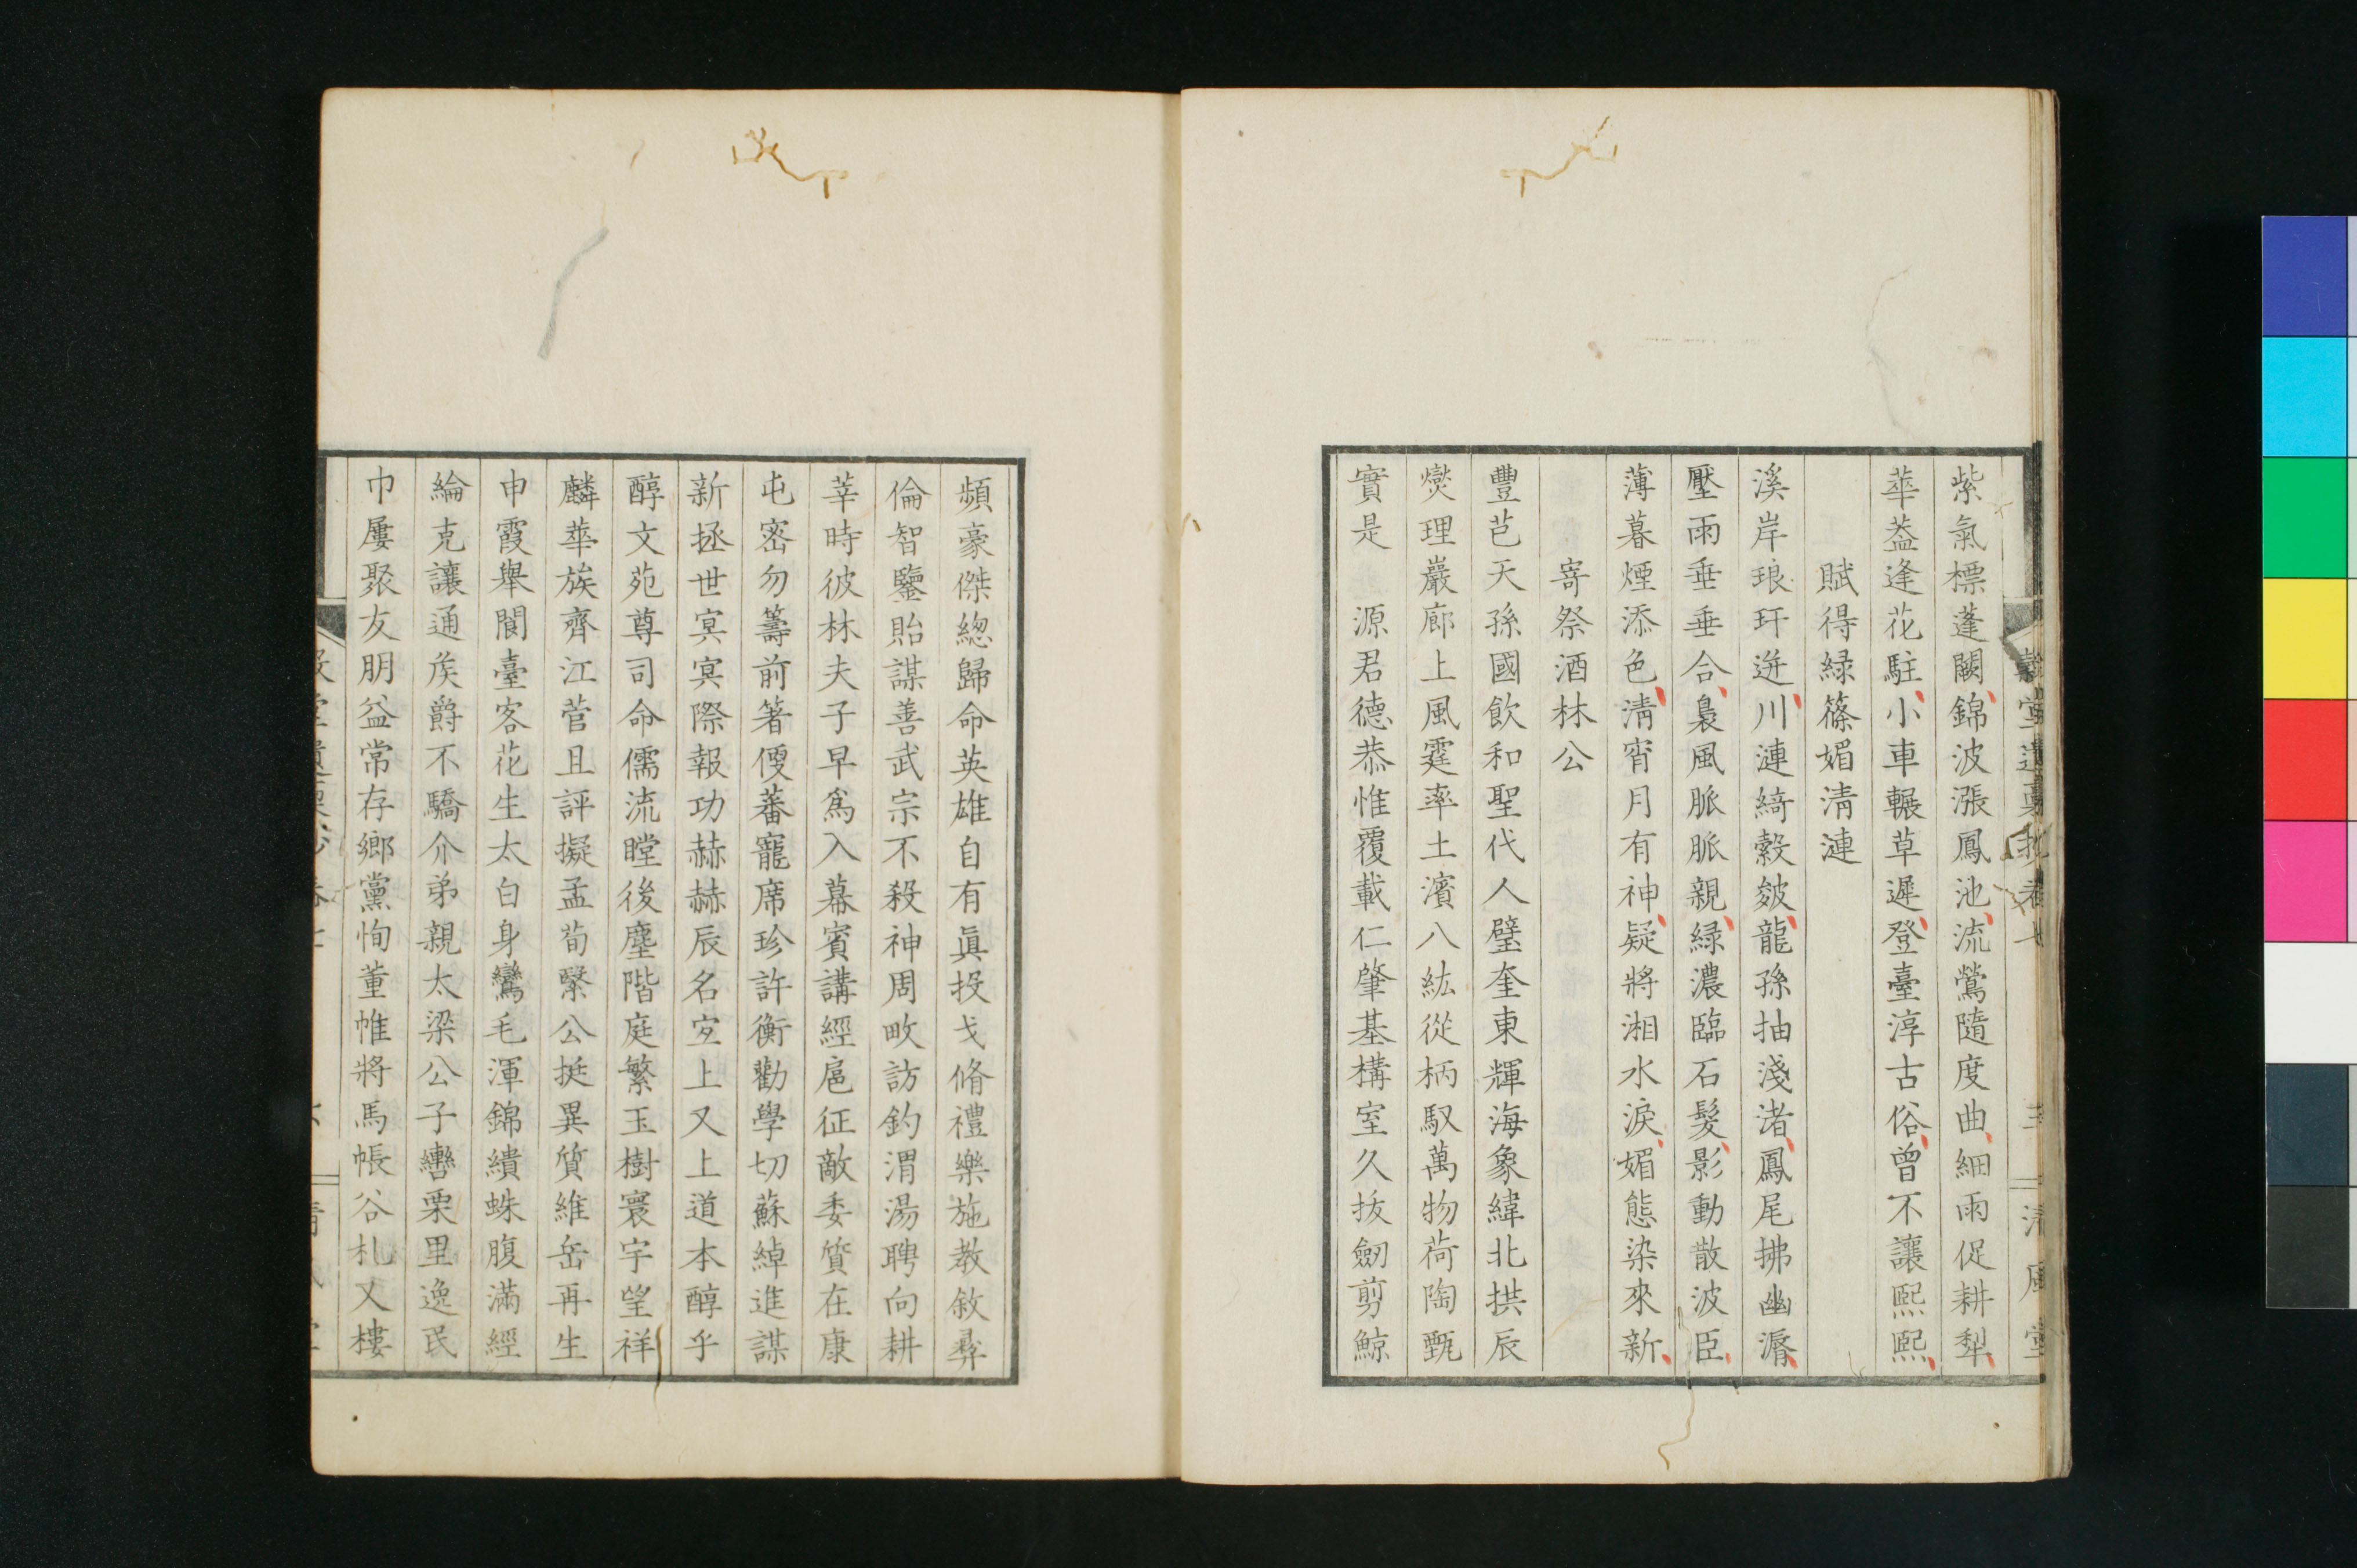 紫氣標蓬闕錦波漲鳳池流鶯隨度曲細雨促耕犁
華葢逢花駐小車輾草遲登臺淳古俗曾不讓熙熙
賦得緑篠媚淸漣
溪岸琅玕迸川漣綺縠皴龍孫抽淺渚鳳尾拂幽漘
壓雨垂垂合裊風脈脈親緑濃臨石髮影動散波臣
薄暮煙添色淸宵月有神疑將湘水淚媚態染來新
寄祭酒林公
豐芑天孫國飲和聖代人璧奎東輝海象緯北拱辰
爕理巖廊上風霆率土濱八紘從柄馭萬物荷陶甄
實是源君德恭惟覆載仁肇基構室久拔劒剪鯨
頻豪傑總歸命英雄自有眞投戈脩禮樂施敎敘彝
倫智鑒貽謀善武宗不殺神周畋訪釣渭湯聘向耕
莘時彼林夫子早爲入幕賓講經扈征敵委質在康
屯密勿籌前箸便蕃寵席珍許衡勸學切蘇綽進謀
新拯世冥冥際報功赫赫辰名宜上又上道本醇乎
醇文苑尊司命儒流瞠後塵階庭繁玉樹寰宇望祥
麟華族齊江菅且評擬孟荀緊公挺異質維岳再生
申霞舉閬臺客花生太白身鸞毛渾錦繢蛛腹滿經
綸克讓通矦爵不驕介弟親太梁公子轡栗里逸民
巾屢聚友朋益常存鄉黨恂董帷將馬帳谷札又樓